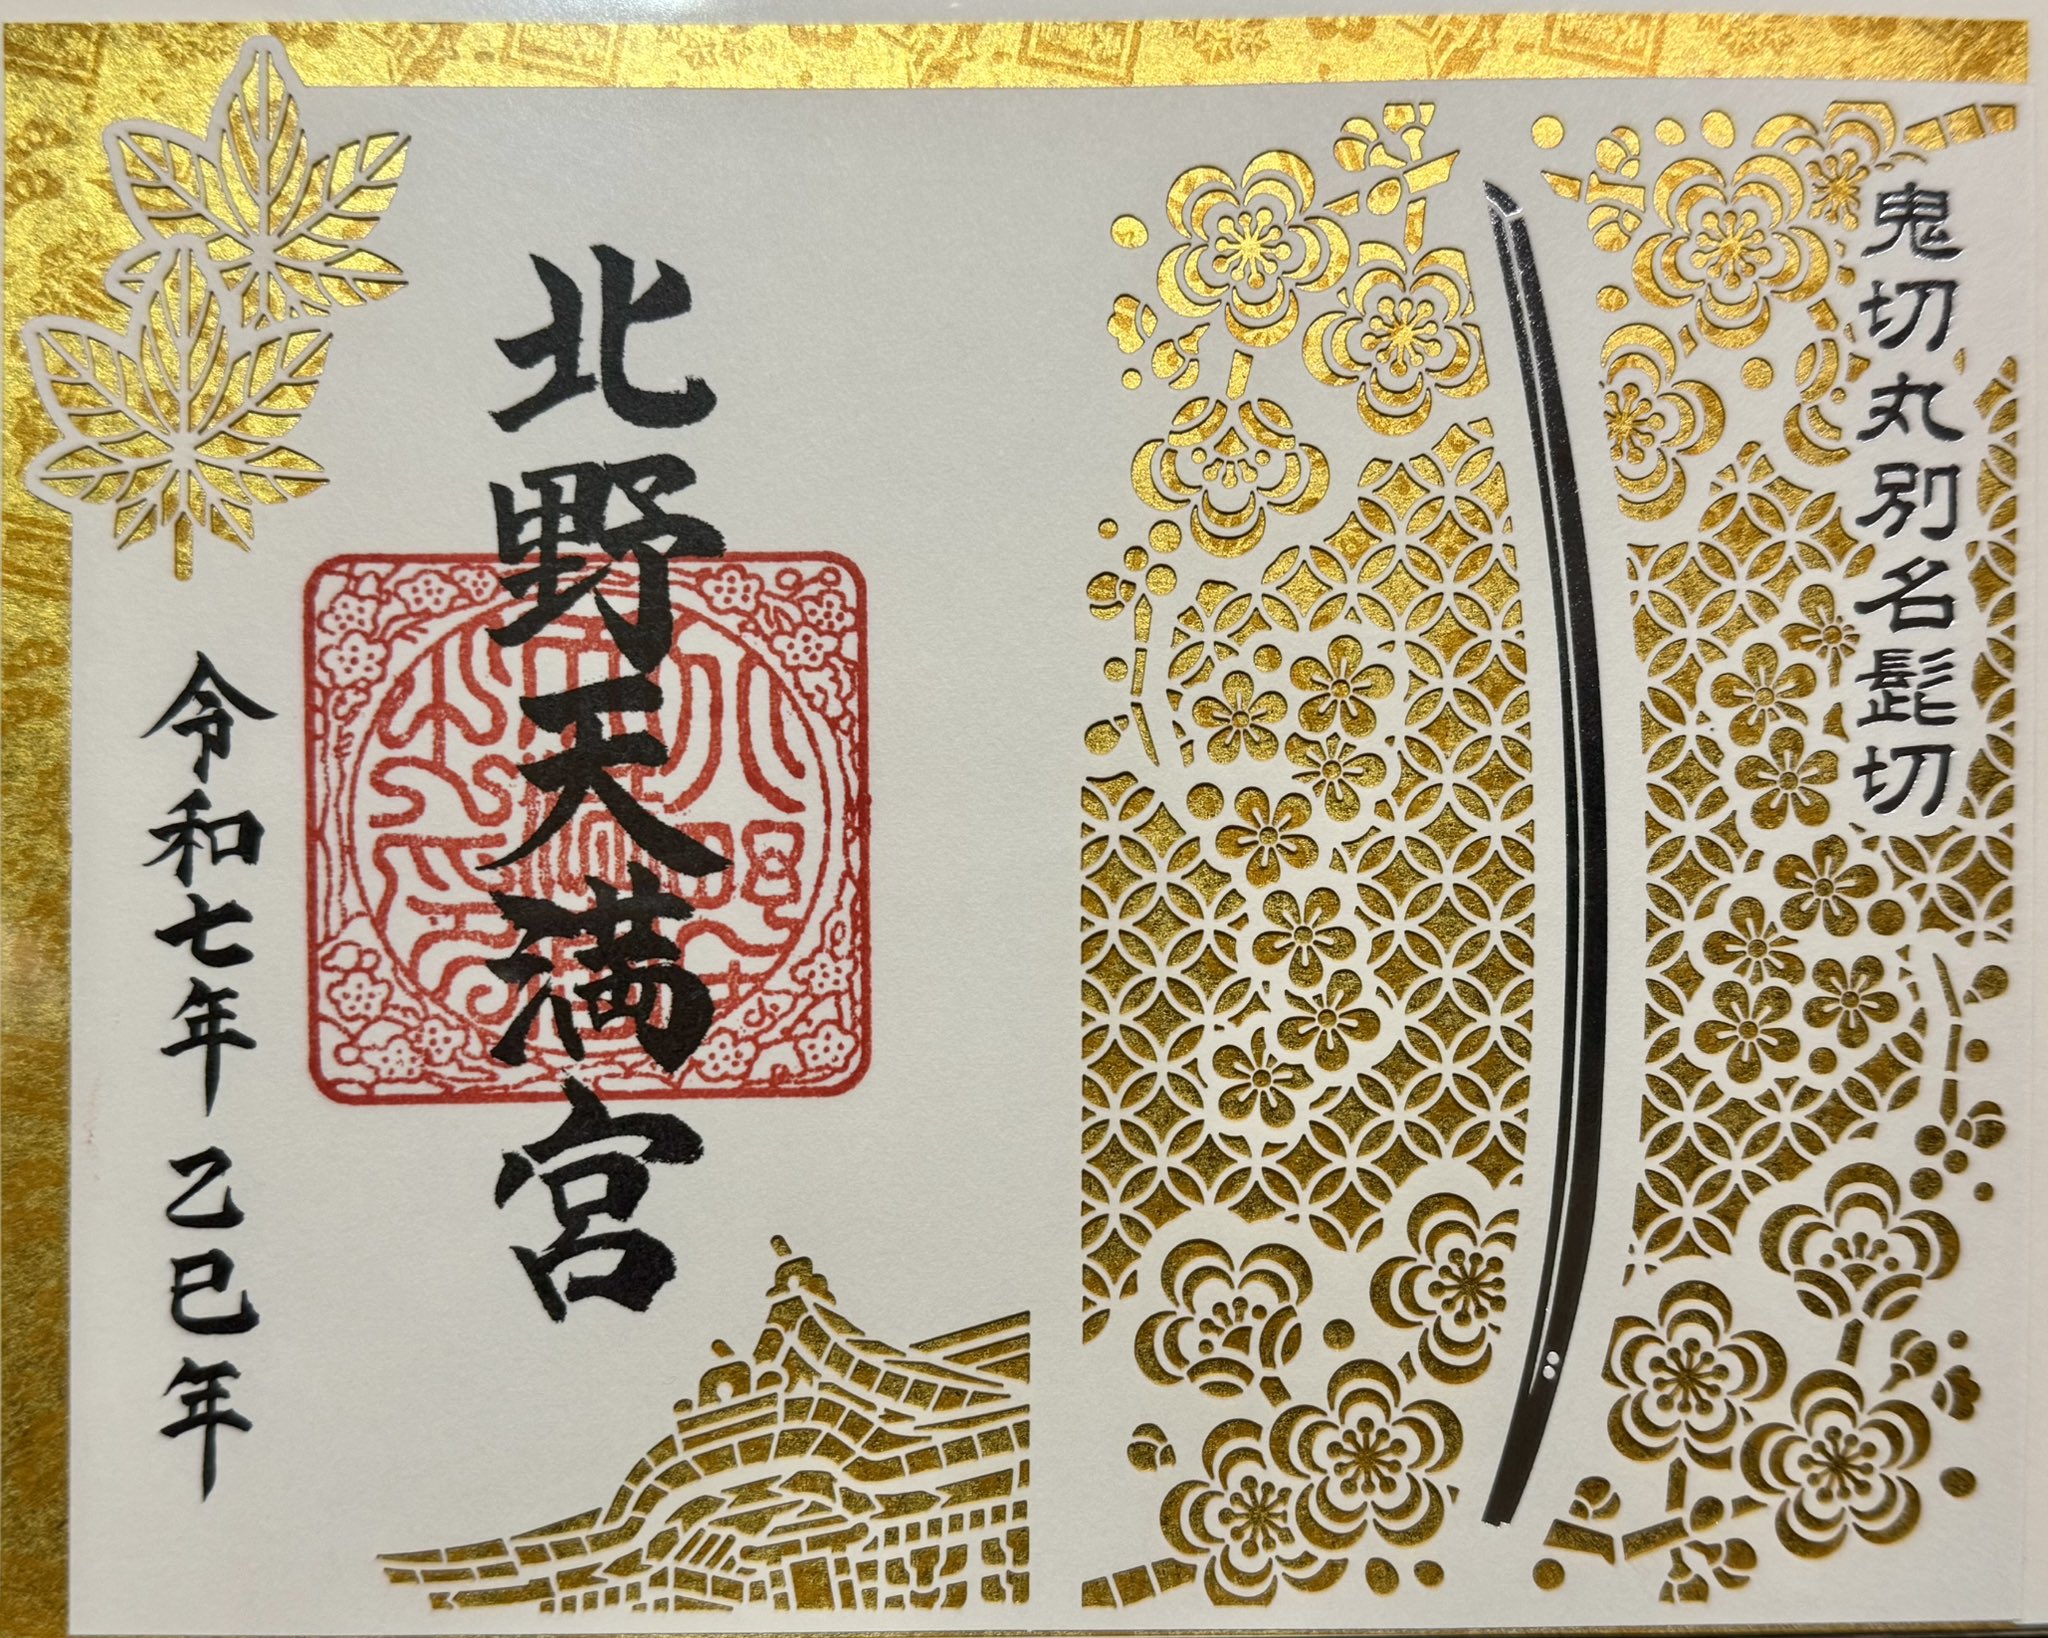 鬼切丸別名髭切
北野天満宮
令和七年乙巳年